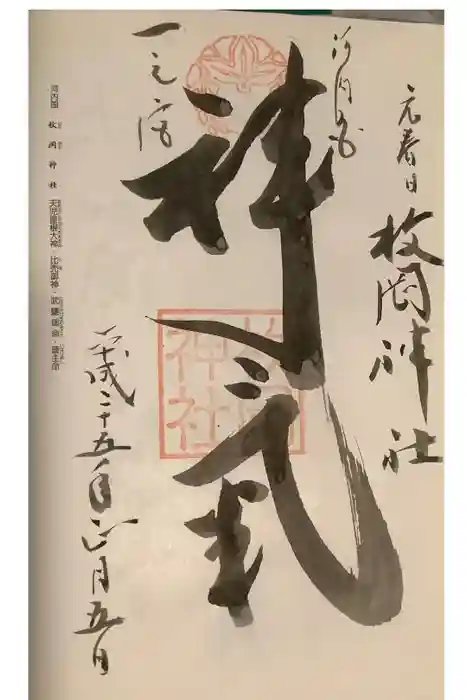 元春日
枚岡神社
河内国
一之宮
神氣
枚岡神社
平成二十五年正月五日
河内国 枚岡神社 天児屋根大神 比売御神・武甕槌命・斎主命